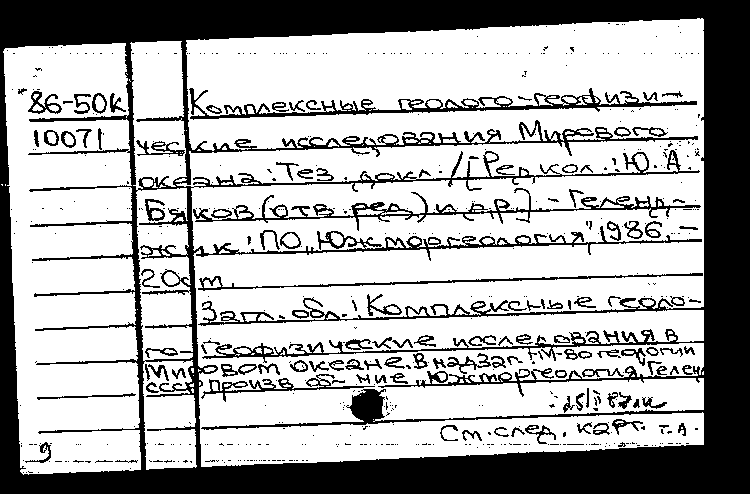 86-50к Комплексные геолого-геофизи-
10071 ческие исследования Мирового
океана: Тез. докл. / [Ред кол.: Ю. А.
Бяков (отв. ред.) и др.]. - Геленд-
жик: ПО „Южморгеология", 1986. -
20 см.
Загл. обл.: Комплексные геоло-
го-геофизические исследования в
Мировом океане. В надзаг.: М-во геологии
СССР, произв. об-ние „Южморгеология", Геленд
См. след. карт. т.А.
9